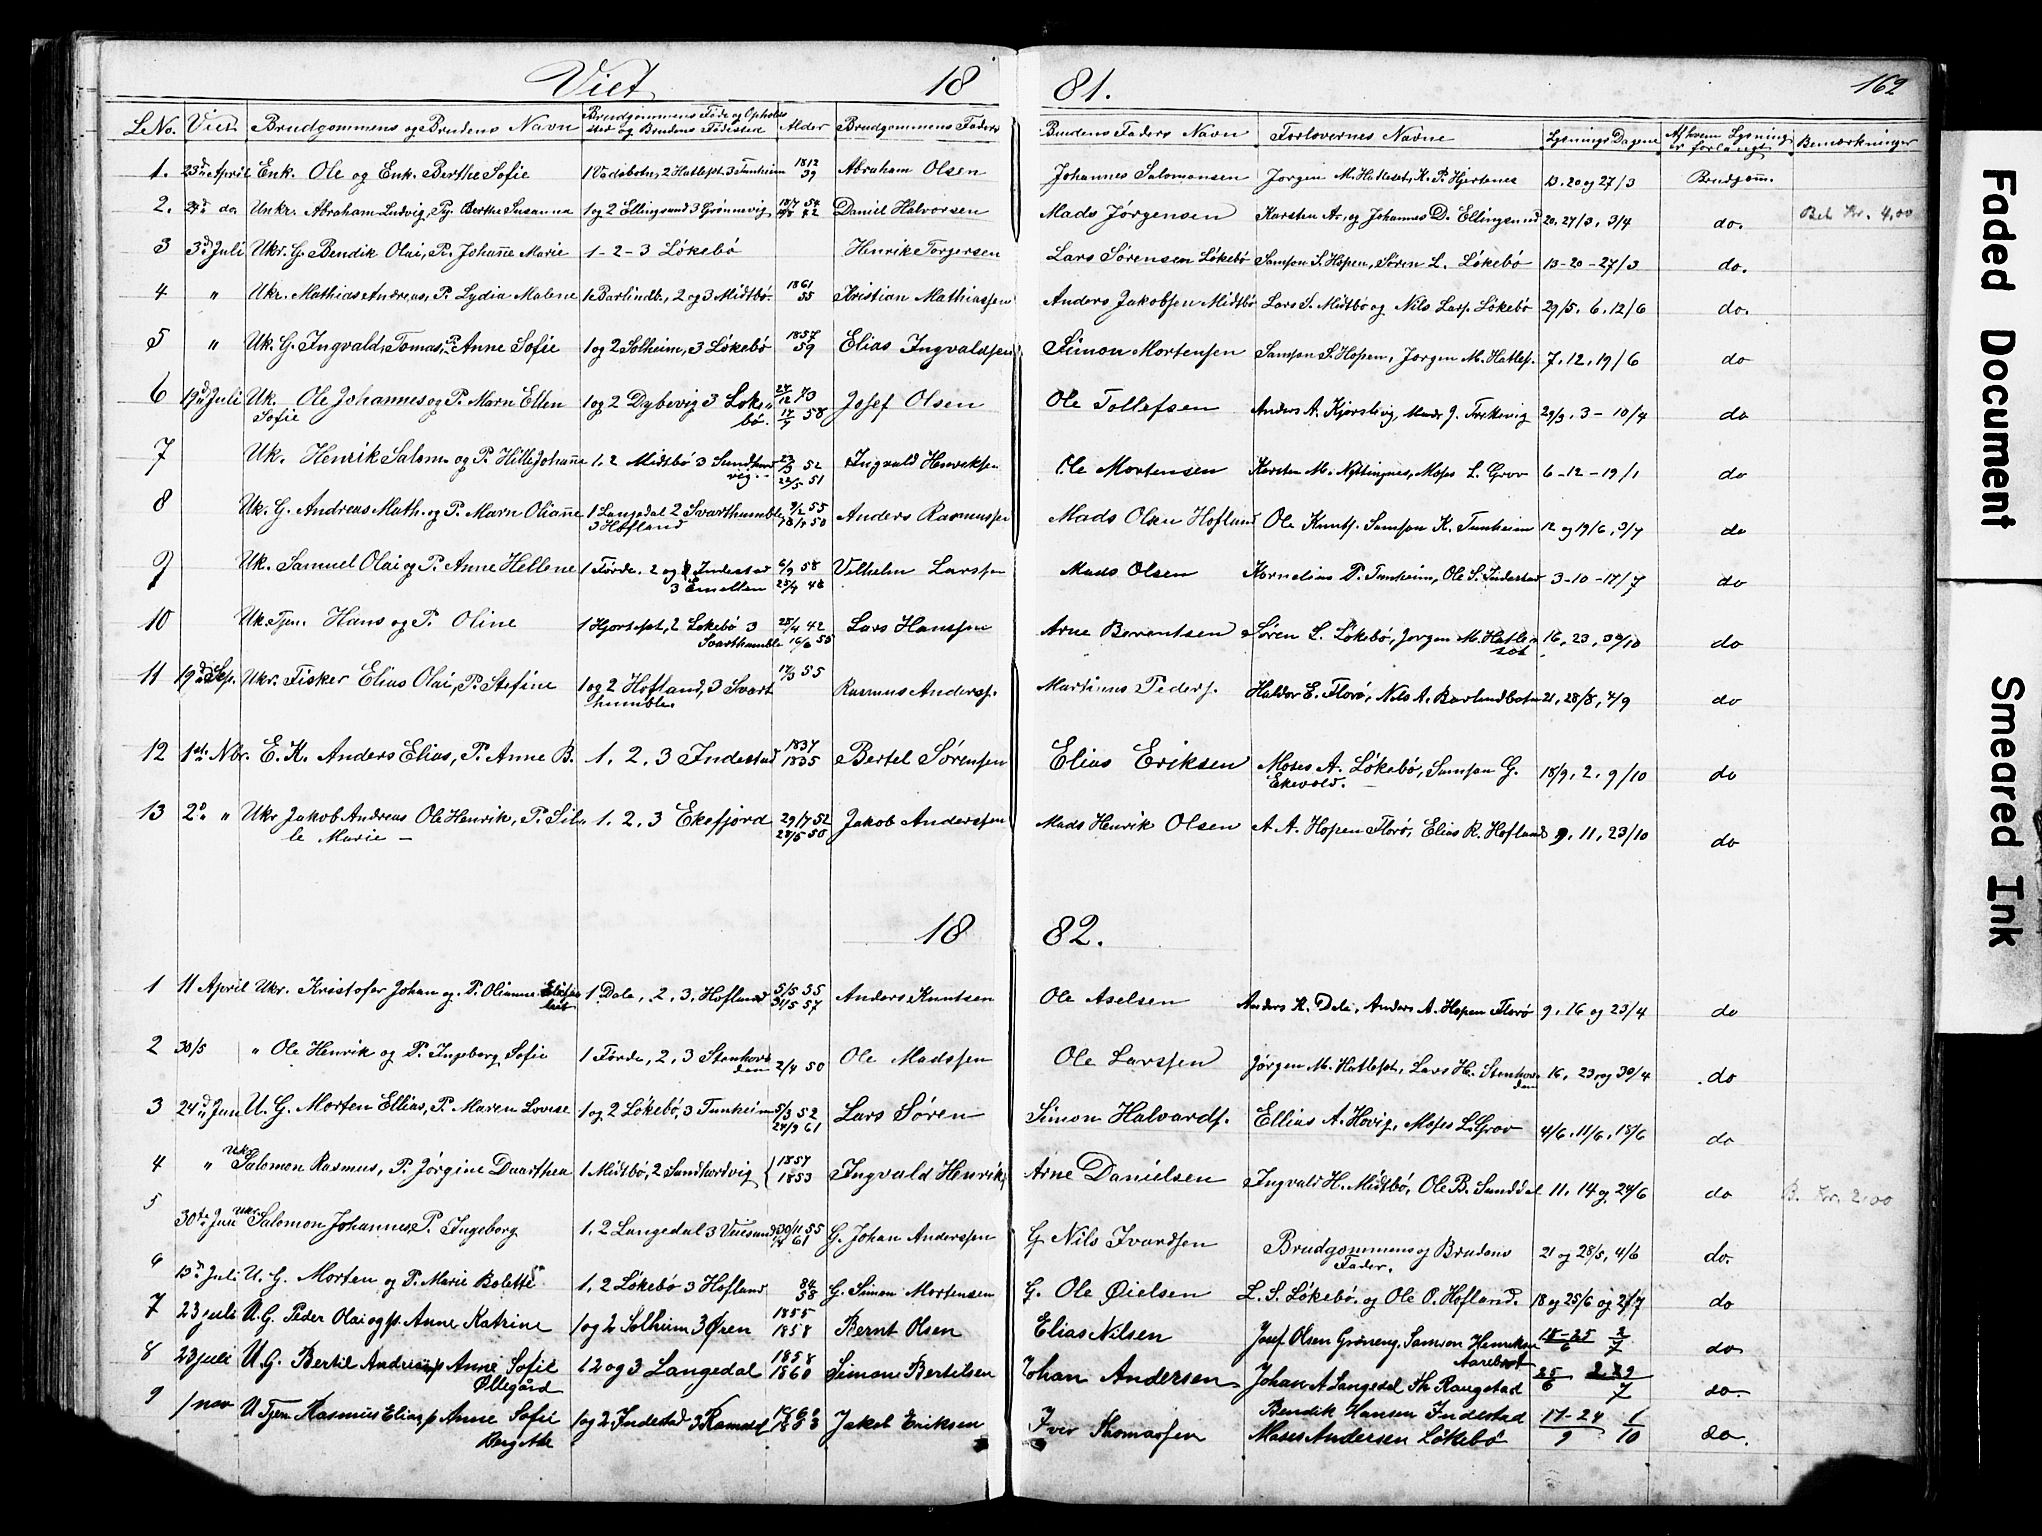 Viet 18 81. 162
LNo. Viet Brudgommens og Brudens Navn Brudgommens Føde og Opholdssted og Brudens Fødested Alder Brudgommens Faders Brudens Faders Navn Forlovernes Navne Lysnings Dagene Af hvem Lysning er forlangt Bemærkninger
1. 23d April Enk. Ole og Enk. Berthe Sofie 1 Vadsbotn, 2 Hatlest 3 Tunheim 1812 39 Abraham Olsen Johannes Salomonsen Jørgen M. Hatleset, K. P. Hjertenes 13. 20 og 27/3 Brudgom.
2. 24d do. Unkr. Abraham Ludvig, Pg. Berthe Susanna 1 og 2 Ellingsund 3 Grønnevig Daniel Halvorsen Mads Jørgensen Karsten A. og Johannes D. Ellingsund 20, 27/3, 3/4 do. Bet. Kr. 4,00
3 3d Juli Ukr. G. Bendik Olai, P. Johanne Marie 1 - 2 - 3 Løkebø Henrik Torgersen Lars Sørensen Løkebø Samson S. Hopen, Søren L. Løkebø 13 - 20 - 27/3 do.
4 " Ukr. Mathias Andreas, P. Lydia Malene 1 Barlindb., 2 og 3 Midtbø. 1861 55 Kristian Mathiassen Anders Jakobsen Midtbø Lars S. Midtbø og Nils Lars. Løkebø 29/5. 6. 12/6 do.
5 " Uk. G. Ingvald Tomas, P. Anne Sofie 1 og 2 Solheim, 3 Løkebø 1857 59 Elias Ingvaldsen Simon Mortensen Samson S. Hopen, Jørgen M. Hatles. 7. 12. 19/6 do
6 19d Juli Uk. Ole Johannes og P. Marn Ellen 1 og 2 Dybevig 3 Løke- Josef Olsen Ole Tollefsen Anders A. Kjorslevig, Mads J. Trekevig 29/3. 3 - 10/4 do
Sofie bø. 17/7 58
7 Uk. Henrik Salom. og P. Hille Johanne 1. 2 Midtbø 3 Sundhord 23/3 52 Ingvald Henriksen Ole Mortensen Karsten M. Nyttingnes, Moses L. Grov 6 - 12 - 19/1 do
vig. 22/5 51
8 Uk. G. Andreas Math. og P. Marn Olianne 1 Langedal 2 Svarthumble 9/2 55 Anders Rasmussen Mads Olsen Hofland Ole Knuts. Samson K. Tunheim 12 og 19/6, 3/7 do
3 Hofland
9 Uk. Samuel Olai og P. Anne Hellene 1 Førde. 2 og Indestad 6/9 58 Vilhelm Larssen Mads Olsen Kornelius P. Tunheim, Ole S. Indestad 3 - 10 - 17/7 do
3 Smelten 25/4 48
10 Uk. Tjen. Hans og P. Oline 1 Hjortest, 2 Løkebø 3 25/4 42 Lars Hanssen Arne Berentsen Søren L. Løkebø, Jørgen M. Hatle- 16, 23, 30/10 do
Svarthumble 16/6 55 set
11 19d Sep. Ukr. Fisker Elias Olai, P. Stefine 1 og 2 Hofland, 3 Svart 17/3 55 Rasmus Anders. Martinus Peders. Haldor E. Florø, Nils A. Barlundbotn 21, 28/8, 4/9 do
humble.
12 1ste Nbr. E. K. Anders Elias, P. Anne B. 1, 2, 3 Indestad 1837 1835 Bertel Sørensen Elias Eriksen Moses A. Løkebø, Samson G. 18/9, 2, 9/10 do
Ekevold.
13 2d " Ukr Jakob Andreas Ole Henrik, P. Sil- 1. 2, 3 Ekefjord 29/7 52 Jakob Anderssen Mads Henrik Olsen A. A. Hopen Florø, Elias R. Hofland 9, 11, 23/10 do
le Marie - 24/5 50
18 82.
1 11 April Ukr. Kristofer Johan og P. Olianne 1 Dale, 2, 3, Hofland 5/5 55 Anders Knutsen Ole Aselsen Anders K. Dale, Anders A. Hopen Florø 9, 16 og 23/4 do
31/5 57
2 30/5 " Ole Henrik og P. Ingeborg Sofie 1 Førde, 2, 3 Stenhov 2/4 50 Ole Madssen Ole Larssen Jørgen M. Hatlest, Lars H. Stenhov 16, 23 og 30/4 do
den den
3 24d Jun U. G. Morten Ellias, P. Maren Lovise 1 og 2 Løkebø, 3 Tunheim 5/3 52 Lars Søren Simon Halvards. Ellias A. Hovig, Moses L. Grov 4/6, 11/6, 18/6 do
24/9 61
4 " Ukr Salomon Rasmus, P. Jørgine Daarthea 1 Midtbø, 2 Sundhordvig { 1857 1853 Ingvald Henrik Arne Danielsen Ingvald H. Midtbø, Ole B. Sunddal 11, 14 og 24/6 do B. Kr. 2.00
5 30te Jun Ukr Salomon Johannes P. Ingeborg 1, 2 Langedal 3 30/11 55 G. Johan Anderssen G. Nils Ivarssen Brudgommens og Brudens 21 og 28/5, 4/6 do.
61 Fader.
6 13d Juli U. G. Morten og P. Marie Bolette 1, 2 Løkebø 3 Hofland 84 58 G. Simon Mortensen G. Ole Øielsen L. S. Løkebø. og Ole O. Hofland. 18 og 25/6 og 2/7 do
7 23 juli U. G. Peder Olai og p. Anne Katrine 1 og 2 Solhium 3 Øren 1855 1858 Bernt Olsen Elias Nilsen Josef Olsen Grøneng, Samson Henriksen 18-25/6 2/7 do
Aarebrot
8 23 juli U. G. Bertil Andrias p Anne Sofie 1 2 og 3 Langedal 1858 1860 Simon Bertilsen Johan Andersen Johan A Langedal Th Raugstad 25/6 2.29/7 do.
Øllegård
9 1 nov U Tjen Rasmus Elias p Anne Sofie 1 og 2 Indestad 3 Ramsdal Jakob Eriksen Iver Thomassen Bendik Hansen Indestad 17-24/9 1/10 do.
Bergitte Moses Andersen Løkebø
Faded Document
Smeared Ink